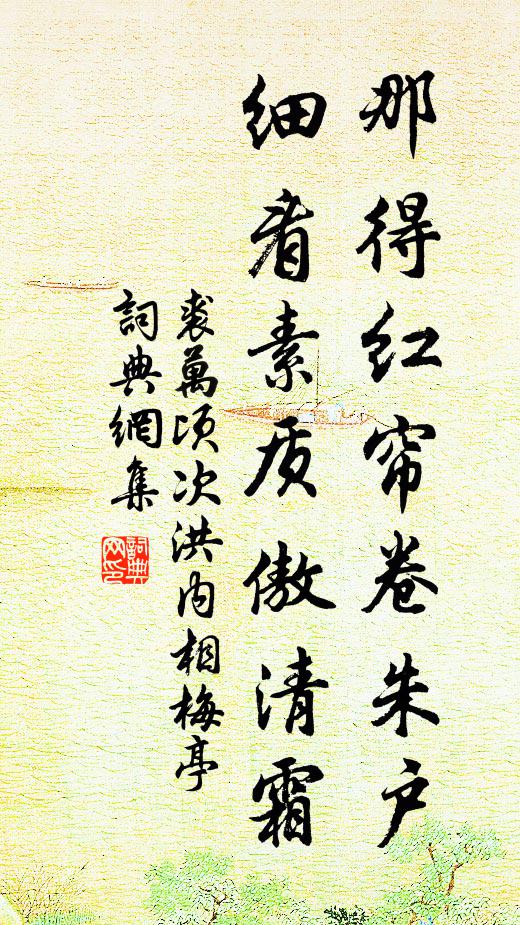 那得红帘卷朱户
细看素质傲清霜
裘萬顷次洪内相梅亭
詞典網集
詞典网印